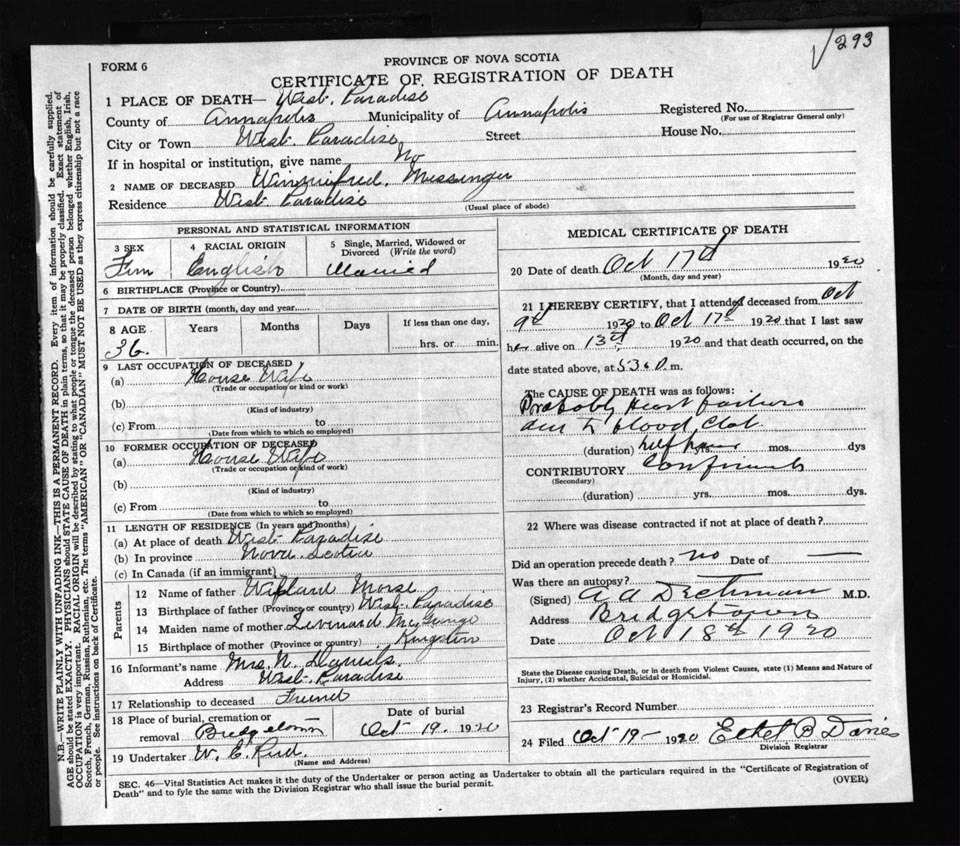 √293
FORM 6
PROVINCE OF NOVA SCOTIA
CERTIFICATE OF REGISTRATION OF DEATH
1 PLACE OF DEATH— West Paradise
County of Annapolis Municipality of Annapolis Registered No.
(For use of Registrar General only)
City or Town West Paradise Street House No.
If in hospital or institution, give name No
2 NAME OF DECEASED Winnifred Messinger
Residence West Paradise
(Usual place of abode)
PERSONAL AND STATISTICAL INFORMATION
3 SEX 4 RACIAL ORIGIN 5 Single, Married, Widowed or Divorced (Write the word)
Fem English Married
6 BIRTHPLACE (Province or Country)
7 DATE OF BIRTH (month, day and year)
8 AGE Years Months Days If less than one day,
36. hrs. or min.
9 LAST OCCUPATION OF DECEASED
(a) House Wife
(Trade or occupation or kind or work)
(b)
(Kind of industry)
(c) From to
(Date from which to which so employed)
10 FORMER OCCUPATION OF DECEASED
(a) House Wife
(Trade or occupation or kind of work)
(b)
(Kind of industry)
(c) From to
(Date from which to which so employed)
11 LENGTH OF RESIDENCE (In years and months)
(a) At place of death West Paradise
(b) In province Nova Scotia
(c) In Canada (if an immigrant)
Parents
12 Name of father Morse
13 Birthplace of father (Province or country) West Paradise
14 Maiden name of mother
15 Birthplace of mother (Province or country) Kingston
16 Informant's name Mrs. N. Daniels.
Address West Paradise
17 Relationship to deceased Friend
18 Place of burial, cremation or removal Bridgetown
Date of burial Oct 19. 1920
19 Undertaker W. E.
(Name and Address)
MEDICAL CERTIFICATE OF DEATH
20 Date of death Oct 17th 1920
(Month, day and year)
21 I HEREBY CERTIFY, that I attended deceased from Oct
9th 1920 to Oct 17th 1920 that I last saw
her alive on 13th 1920 and that death occurred, on the
date stated above, at 5 30 P. m.
The CAUSE OF DEATH was as follows:
Probably Heart failure
due to blood clot
(duration) half hour yrs. mos. dys
CONTRIBUTORY
(Secondary)
(duration) yrs. mos. dys.
22 Where was disease contracted if not at place of death?
Did an operation precede death? no Date of —
Was there an autopsy?
(Signed) A A Dechman M.D.
Address Bridgetown
Date Oct 18th 1920
State the Disease causing Death, or in death from Violent Causes, state (1) Means and Nature of
Injury, (2) whether Accidental, Suicidal or Homicidal.
23 Registrar's Record Number
24 Filed Oct-19- 1920 Ethel B Daniels
Division Registrar
SEC. 46—Vital Statistics Act makes it the duty of the Undertaker or person acting as Undertaker to obtain all the particulars required in the "Certificate of Registration of
Death" and to fyle the same with the Division Registrar who shall issue the burial permit.
(OVER)
N.B.—WRITE PLAINLY WITH UNFADING INK—THIS IS A PERMANENT RECORD. Every item of information should be carefully supplied.
AGE should be stated EXACTLY. PHYSICIANS should STATE CAUSE OF DEATH in plain terms, so that it may be properly classified. Exact statement of
OCCUPATION is very important. RACIAL ORIGIN will be described by stating to what people or tongue the deceased person belonged whether English, Irish,
Scotch, French, German, Russian, Ruthenian, etc. The terms "AMERICAN" OR "CANADIAN" MUST NOT BE USED as they express citizenship but not a race
or people. See instructions on back of Certificate.